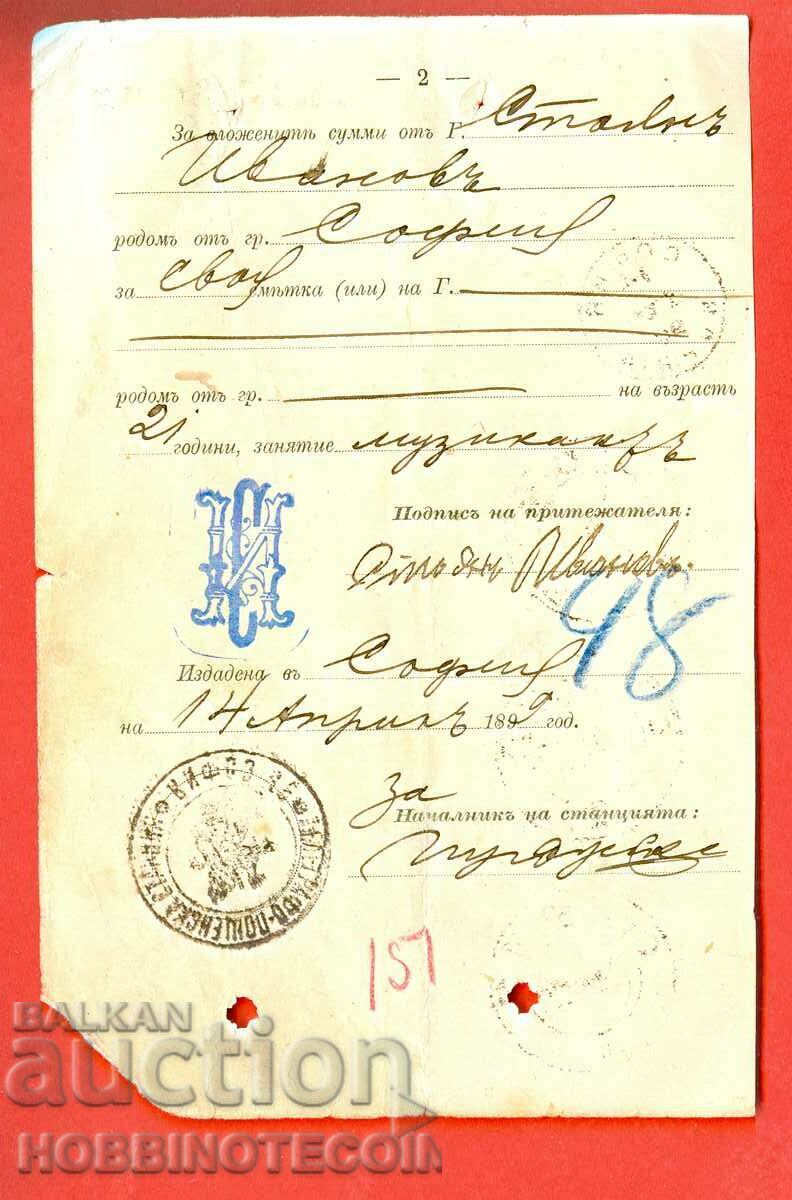 — 2 —
За вложенитѣ сумми отъ Г. Стоянъ
Ивановъ
родомъ отъ гр. София
за своя смѣтка (или) на Г.
родомъ отъ гр. на възрасть
21 години, занятие музикантъ
Подписъ на притежателя:
Стоянъ Ивановъ.
48
Издадена въ София
на 14 Априлъ 1899 год.
за
Началникъ на станцията:
ТЕЛЕГРАФО-ПОЩЕНСКА СТАНЦИЯ СОФИЯ
151
BALKAN
auction
HOBBINOTECOIN